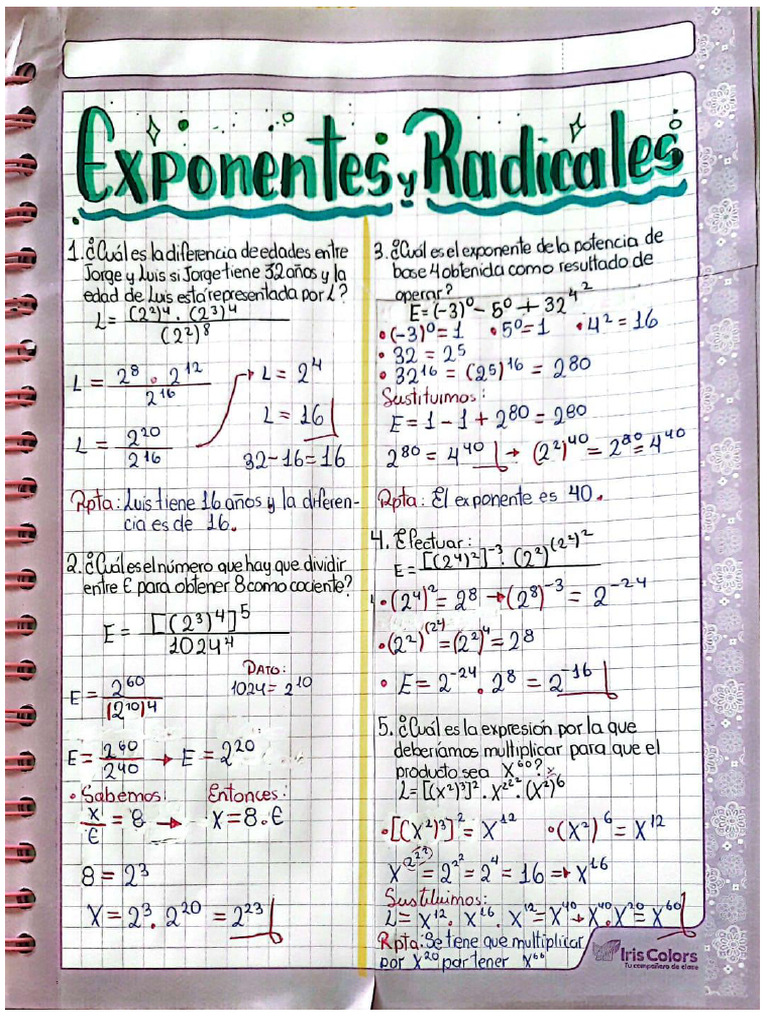 Exponentes y Radicales
1. ¿Cuál es la diferencia de edades entre
Jorge y Luis si Jorge tiene 32 años y la
edad de Luis está representada por L?
L = (2²)⁴ . (2³)⁴ / (2²)⁸
L = 2⁸ . 2¹² / 2¹⁶
L = 2²⁰ / 2¹⁶
→ L = 2⁴
L = 16
32 - 16 = 16
Rpta: Luis tiene 16 años y la diferen-
cia es de 16.
2. ¿Cuál es el número que hay que dividir
entre E para obtener 8 como cociente?
E = [(2³)⁴]⁵ / 1024⁴
E = 2⁶⁰ / (2¹⁰)⁴
DATO:
1024 = 2¹⁰
E = 2⁶⁰ / 2⁴⁰ → E = 2²⁰
• Sabemos: Entonces:
x / E = 8 → X = 8.E
8 = 2³
X = 2³ . 2²⁰ = 2²³
3. ¿Cuál es el exponente de la potencia de
base 4 obtenida como resultado de
operar?
E = (-3)⁰ - 5⁰ + 32^4²
• (-3)⁰ = 1 • 5⁰ = 1 • 4² = 16
• 32 = 25
• 32¹⁶ = (25)¹⁶ = 280
Sustituimos:
E = 1 - 1 + 2⁸⁰ = 280
2⁸⁰ = 4⁴⁰ → (2²)⁴⁰ = 2⁸⁰ = 4⁴⁰
Rpta: El exponente es 40.
4. Efectuar:
E = [(2⁴)²]⁻³ . (2²)^(2²)²
• (2⁴)² = 2⁸ → (2⁸)⁻³ = 2⁻²⁴
• (2²)^(2²) = (2²)⁴ = 2⁸
• E = 2⁻²⁴ . 2⁸ = 2⁻¹⁶
5. ¿Cuál es la expresión por la que
deberíamos multiplicar para que el
producto sea X⁶⁰?
L = [(x²)³]² . x^2^2² . (x²)⁶
• [(x²)³]² = x¹² • (x²)⁶ = x¹²
x^2^2² = 2^2² = 2⁴ = 16 → x¹⁶
Sustituimos:
L = x¹² . x¹⁶ . x¹² = x⁴⁰ → x⁴⁰ . x²⁰ = x⁶⁰
Rpta: Se tiene que multiplicar
por x²⁰ par tener x⁶⁰
Iris Colors
Tu compañero de clase